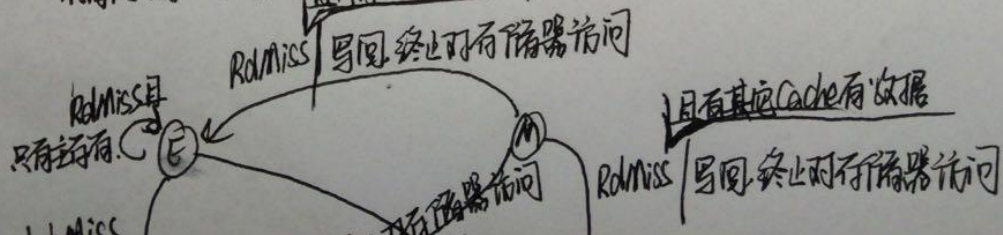 RdMiss 写回.终止对存储器访问
RdMiss且
只有主存有.
E
M
且有其它Cache有数据
RdMiss 写回.终止对存储器访问
存储器访问
Miss